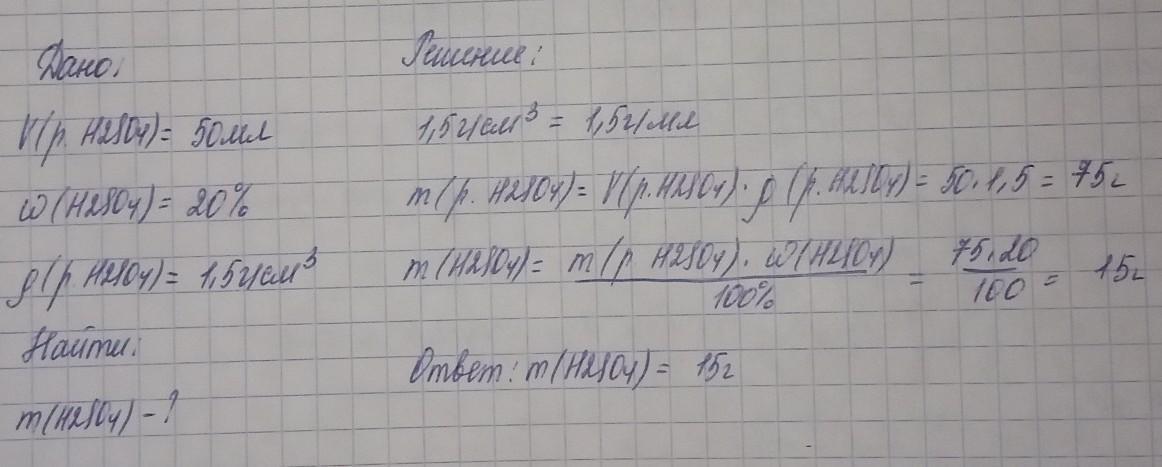 Дано:
V(р. H2SO4) = 50мл
ω(H2SO4) = 20%
ρ(р. H2SO4) = 1,5г/см³
Найти:
m(H2SO4) - ?
Решение:
1,5г/см³ = 1,5г/мл
m(р. H2SO4) = V(р. H2SO4) · ρ(р. H2SO4) = 50 · 1,5 = 75г
m(H2SO4) = m(р. H2SO4) · ω(H2SO4) / 100% = 75 · 20 / 100 = 15г
Ответ: m(H2SO4) = 15г